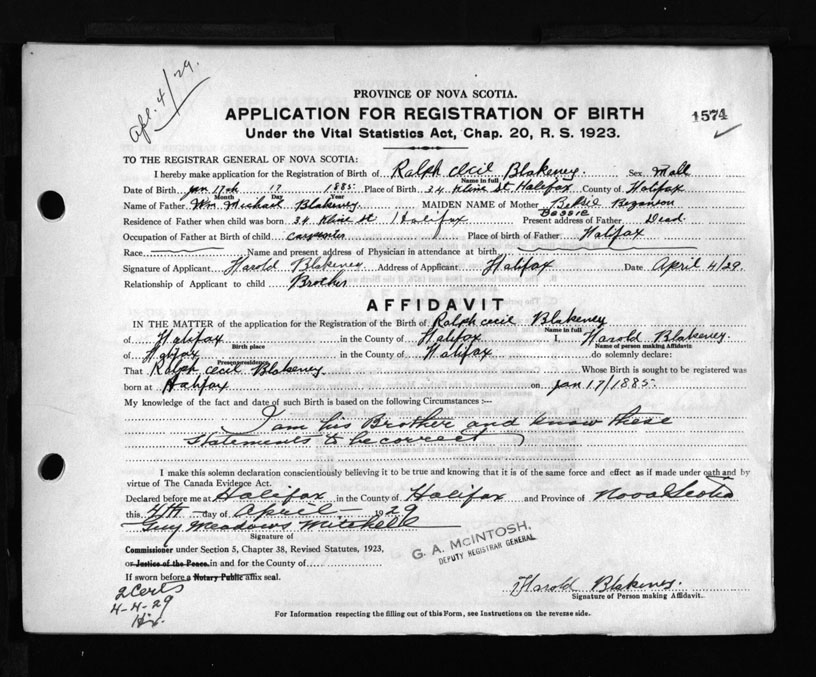 Apl. 4/29.
PROVINCE OF NOVA SCOTIA.
APPLICATION FOR REGISTRATION OF BIRTH
1574
Under the Vital Statistics Act, Chap. 20, R. S. 1923.
TO THE REGISTRAR GENERAL OF NOVA SCOTIA:
I hereby make application for the Registration of Birth of Ralph Cecil Blakeney. Sex Mall
Name in full
Date of Birth Jan 17th 17 1885. Place of Birth 34 Kline St, Halifax County of Halifax
Month Day Year
Name of Father Wm Michael Blakeney MAIDEN NAME of Mother
Bessie
Residence of Father when child was born 34 Kline St Halifax Present address of Father Dead
Occupation of Father at Birth of child Carpenter Place of birth of Father Halifax
Race Name and present address of Physician in attendance at birth
Signature of Applicant Harold Blakeney Address of Applicant Halifax Date April 4/29.
Relationship of Applicant to child Brother
AFFIDAVIT
IN THE MATTER of the application for the Registration of the Birth of Ralph Cecil Blakeney
Name in full
of Halifax in the County of Halifax I, Harold Blakeney.
Birth place Name of person making Affidavit
of Halifax in the County of Halifax do solemnly declare:
Present residence
That Ralph Cecil Blakeney Whose Birth is sought to be registered was
born at Halifax on Jan 17/1885.
My knowledge of the fact and date of such Birth is based on the following Circumstances :—
I am his Brother and know these
statements to be correct
I make this solemn declaration conscientiously believing it to be true and knowing that it is of the same force and effect as if made under oath and by
virtue of The Canada Evidence Act.
Declared before me at Halifax in the County of Halifax and Province of Nova Scotia
this 4th day of April 1929
Guy Meadows Mitchell
Signature of
Commissioner under Section 5, Chapter 38, Revised Statutes, 1923,
or Justice of the Peace in and for the County of
If sworn before a Notary Public affix seal.
G. A. McINTOSH,
DEPUTY REGISTRAR GENERAL
2 Certs
4-4-29
Harold Blakeney.
Signature of Person making Affidavit.
For Information respecting the filling out of this Form, see Instructions on the reverse side.